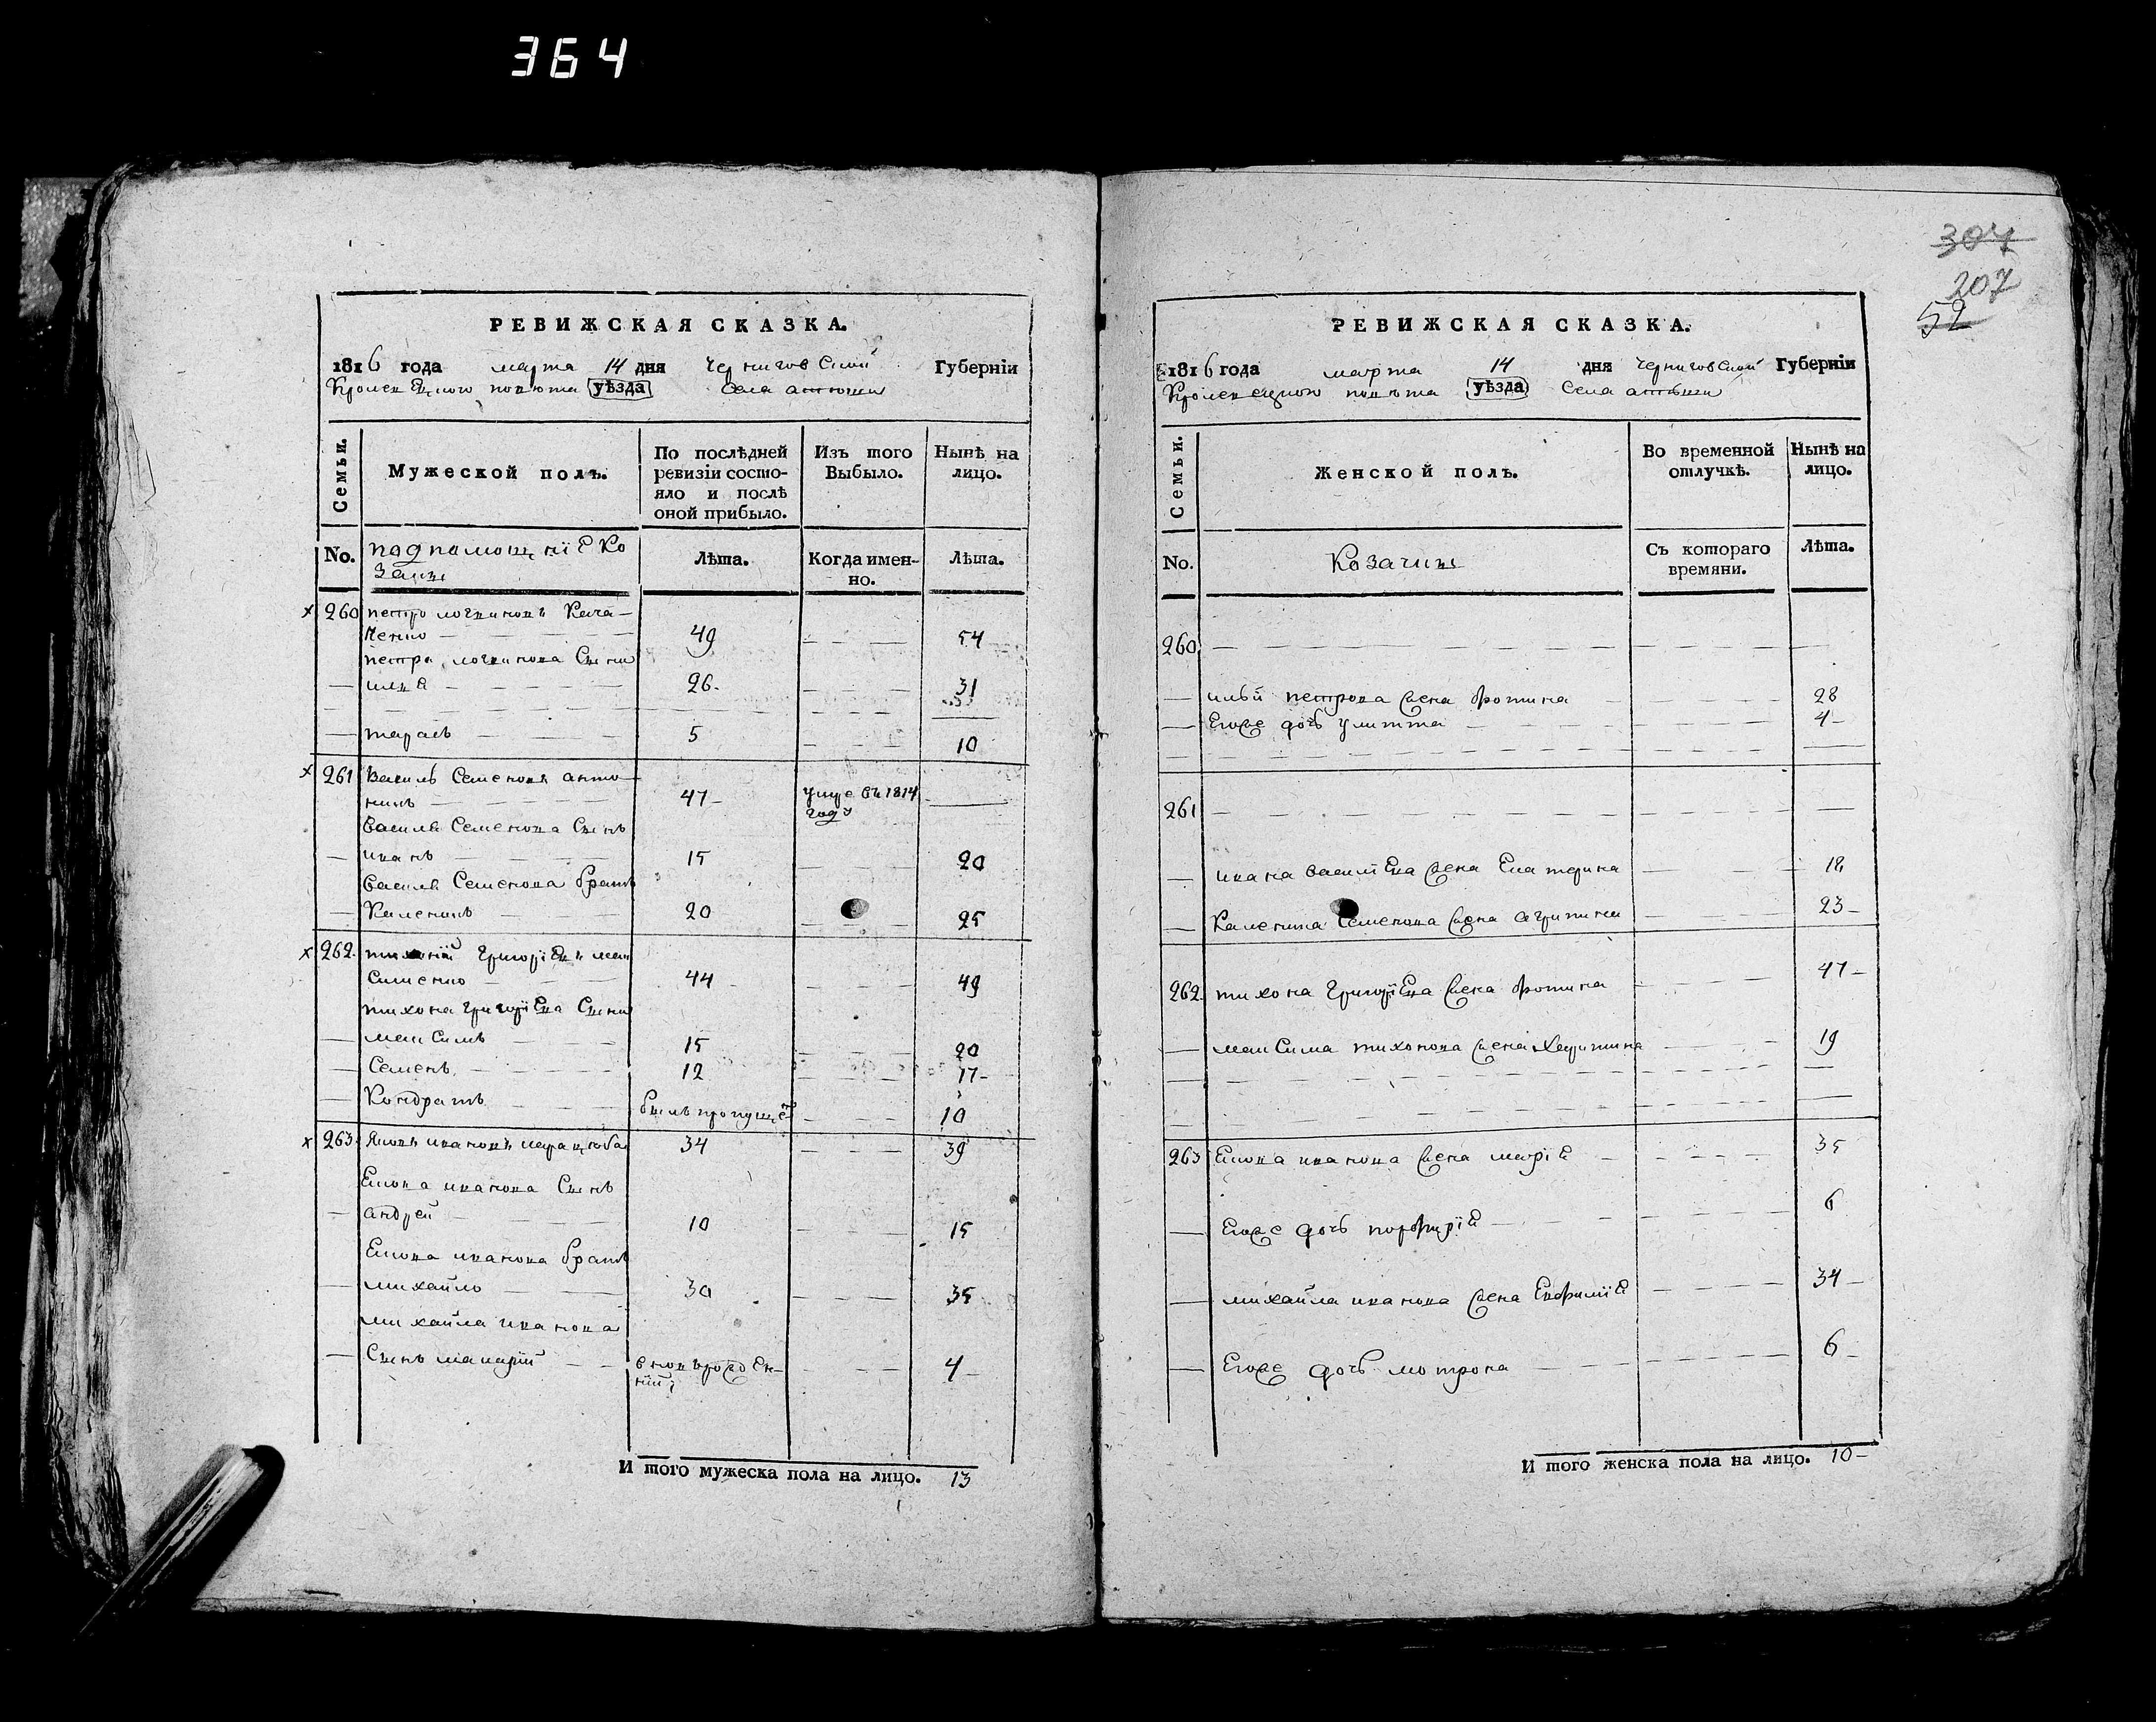 364
РЕВИЖСКАЯ СКАЗКА.
1816 года марта 14 дня Черниговской Губерніи
Кролевецкого повѣта уѣзда Села
Семьи.
Мужеской полъ.
По послѣдней ревизіи состояло и послѣ оной прибыло.
Изъ того Выбыло.
Нынѣ на лицо.
No.
подпомощніе Козаки
Лѣта.
Когда именно.
Лѣта.
260 петро логвиновъ Кача-
ченко 49 54
петра логвинова Сыни
илия 26 31
тарасъ 5 10
261 василь Семеновъ анто-
никъ 47 умре въ 1814 году
василя Семенова Сынъ
иванъ 15 20
василя Семенова братъ
Каленикъ 20 25
262 тихонъ григоріевъ мак
сименко 44 49
тихона григоріева Сыни
максимъ 15 20
Семенъ 12 17
Кондратъ былъ пропущенъ 10
263 Яковъ ивановъ 34 39
Екова иванова Сынъ
андрей 10 15
Екова иванова братъ
михайло 30 35
михайла иванова
Сынъ макарій новорожденній 4
И того мужеска пола на лицо. 13
304
207
52
РЕВИЖСКАЯ СКАЗКА.
1816 года марта 14 дня Черниговской Губерніи
Кролевецкого повѣта уѣзда Села
Семьи.
Женской полъ.
Во временной отлучкѣ.
Нынѣ на лицо.
No.
Козачки
Съ котораго времяни.
Лѣта.
260
илій петрова жена фотина 28
Егоже дочь улитта 4
261
ивана василіева жена Екатерина 18
Каленика Семенова жена агрипина 23
262 тихона григоріева жена фотина 47
максима тихонова жена харитина 19
263 Екова иванова жена марія 35
Егоже дочь порфирія 6
михайла иванова жена Евфимія 34
Егоже дочь мотрона 6
И того женска пола на лицо. 10